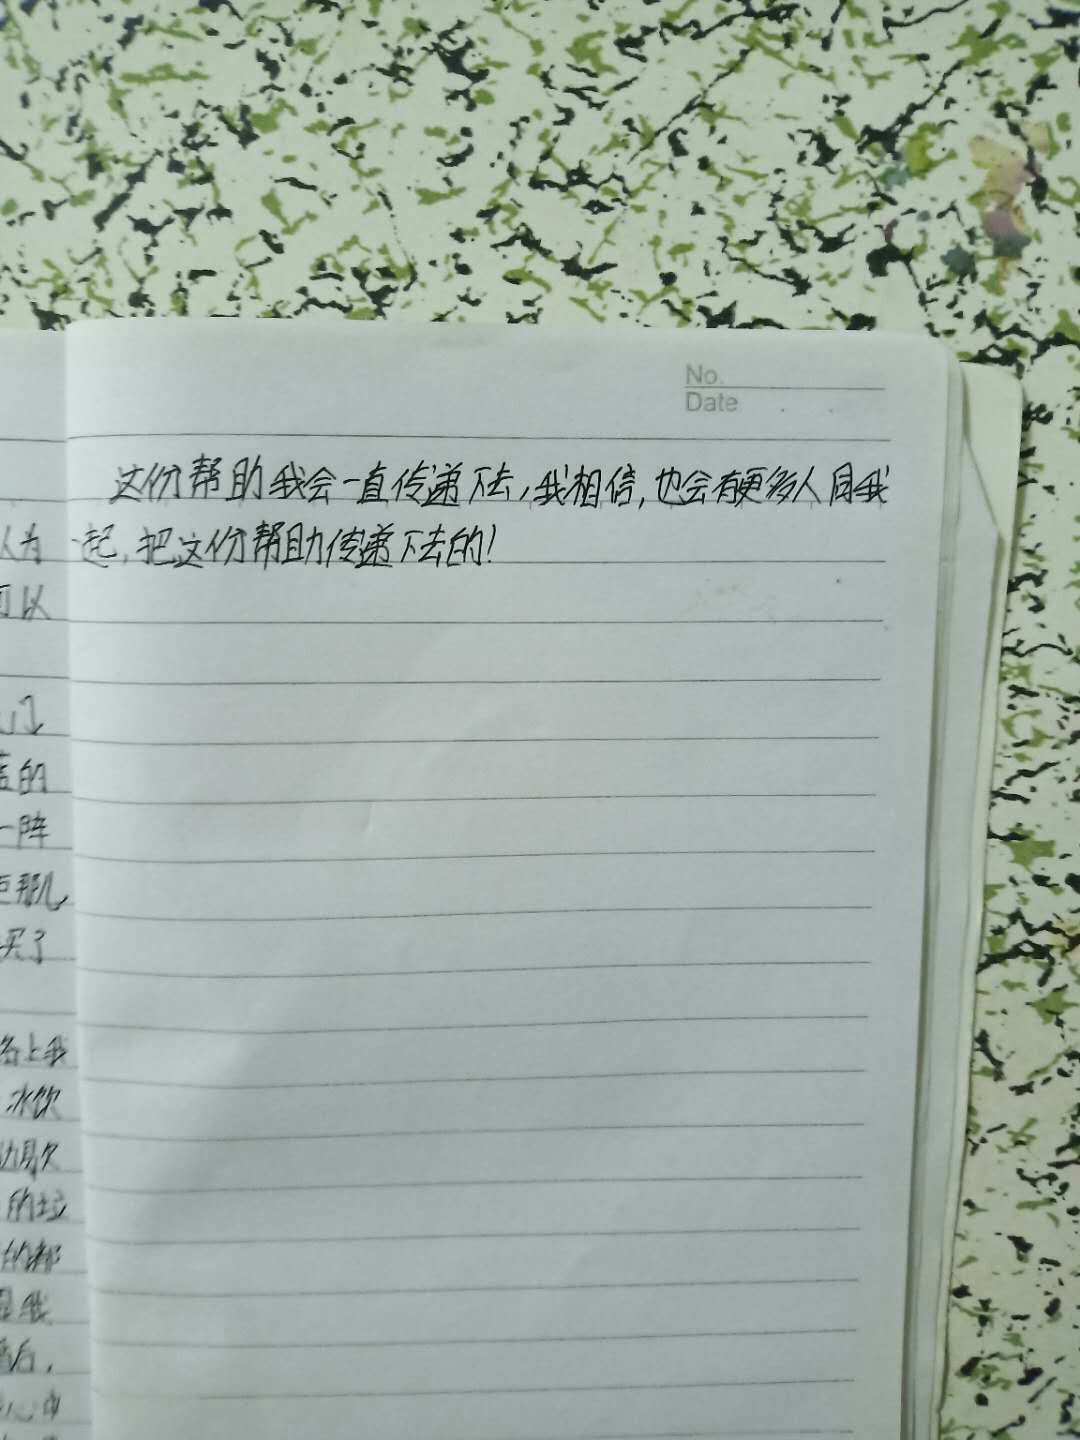 No.
Date
这份帮助我会一直传递下去,我相信,也会有更多人同我
一起,把这份帮助传递下去的!
认为
可以
的
一阵
那儿,
买了
路上我
冰饮
的垃
的都
我
后,
心中